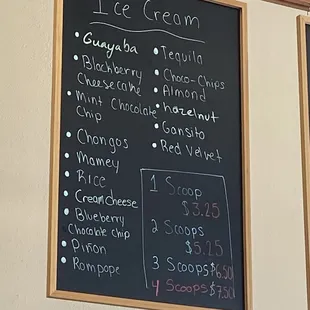 Ice Cream
• Guayaba
• Blackberry
Cheesecake
• Mint Chocolate
Chip
• Chongos
• Mamey
• Rice
• Cream Cheese
• Blueberry
Chocolate chip
• Piñon
• Rompope
• Tequila
• Choco-Chips
• Almond
• hazelnut
• Gansito
• Red Velvet
1 Scoop
$3.25
2 Scoops
$5.25
3 Scoops $6.50
4 Scoops $7.50